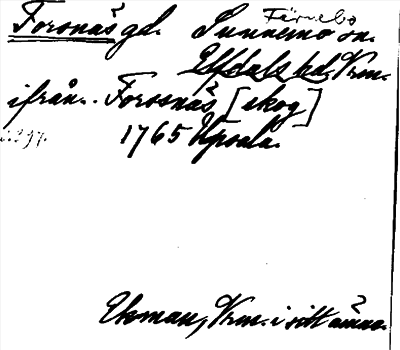 Färnebo
Forsnäs gd. Sunnemo sn.
Elfdals hd, Vrm.
ifrån. Forosnäs [skog]
s. 297. 1765 Upsala.
Ekman, Vrm. i sitt ämne.